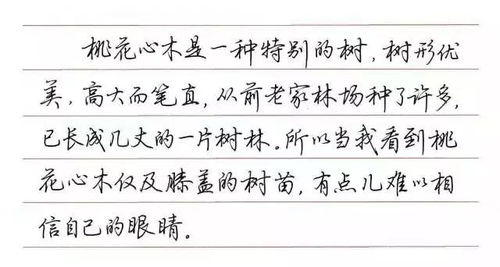 桃花心木是一种特别的树，树形优
美，高大而笔直，从前老家林场种了许多，
已长成几丈的一片树林。所以当我看到桃
花心木仅及膝盖的树苗，有点儿难以相
信自己的眼睛。